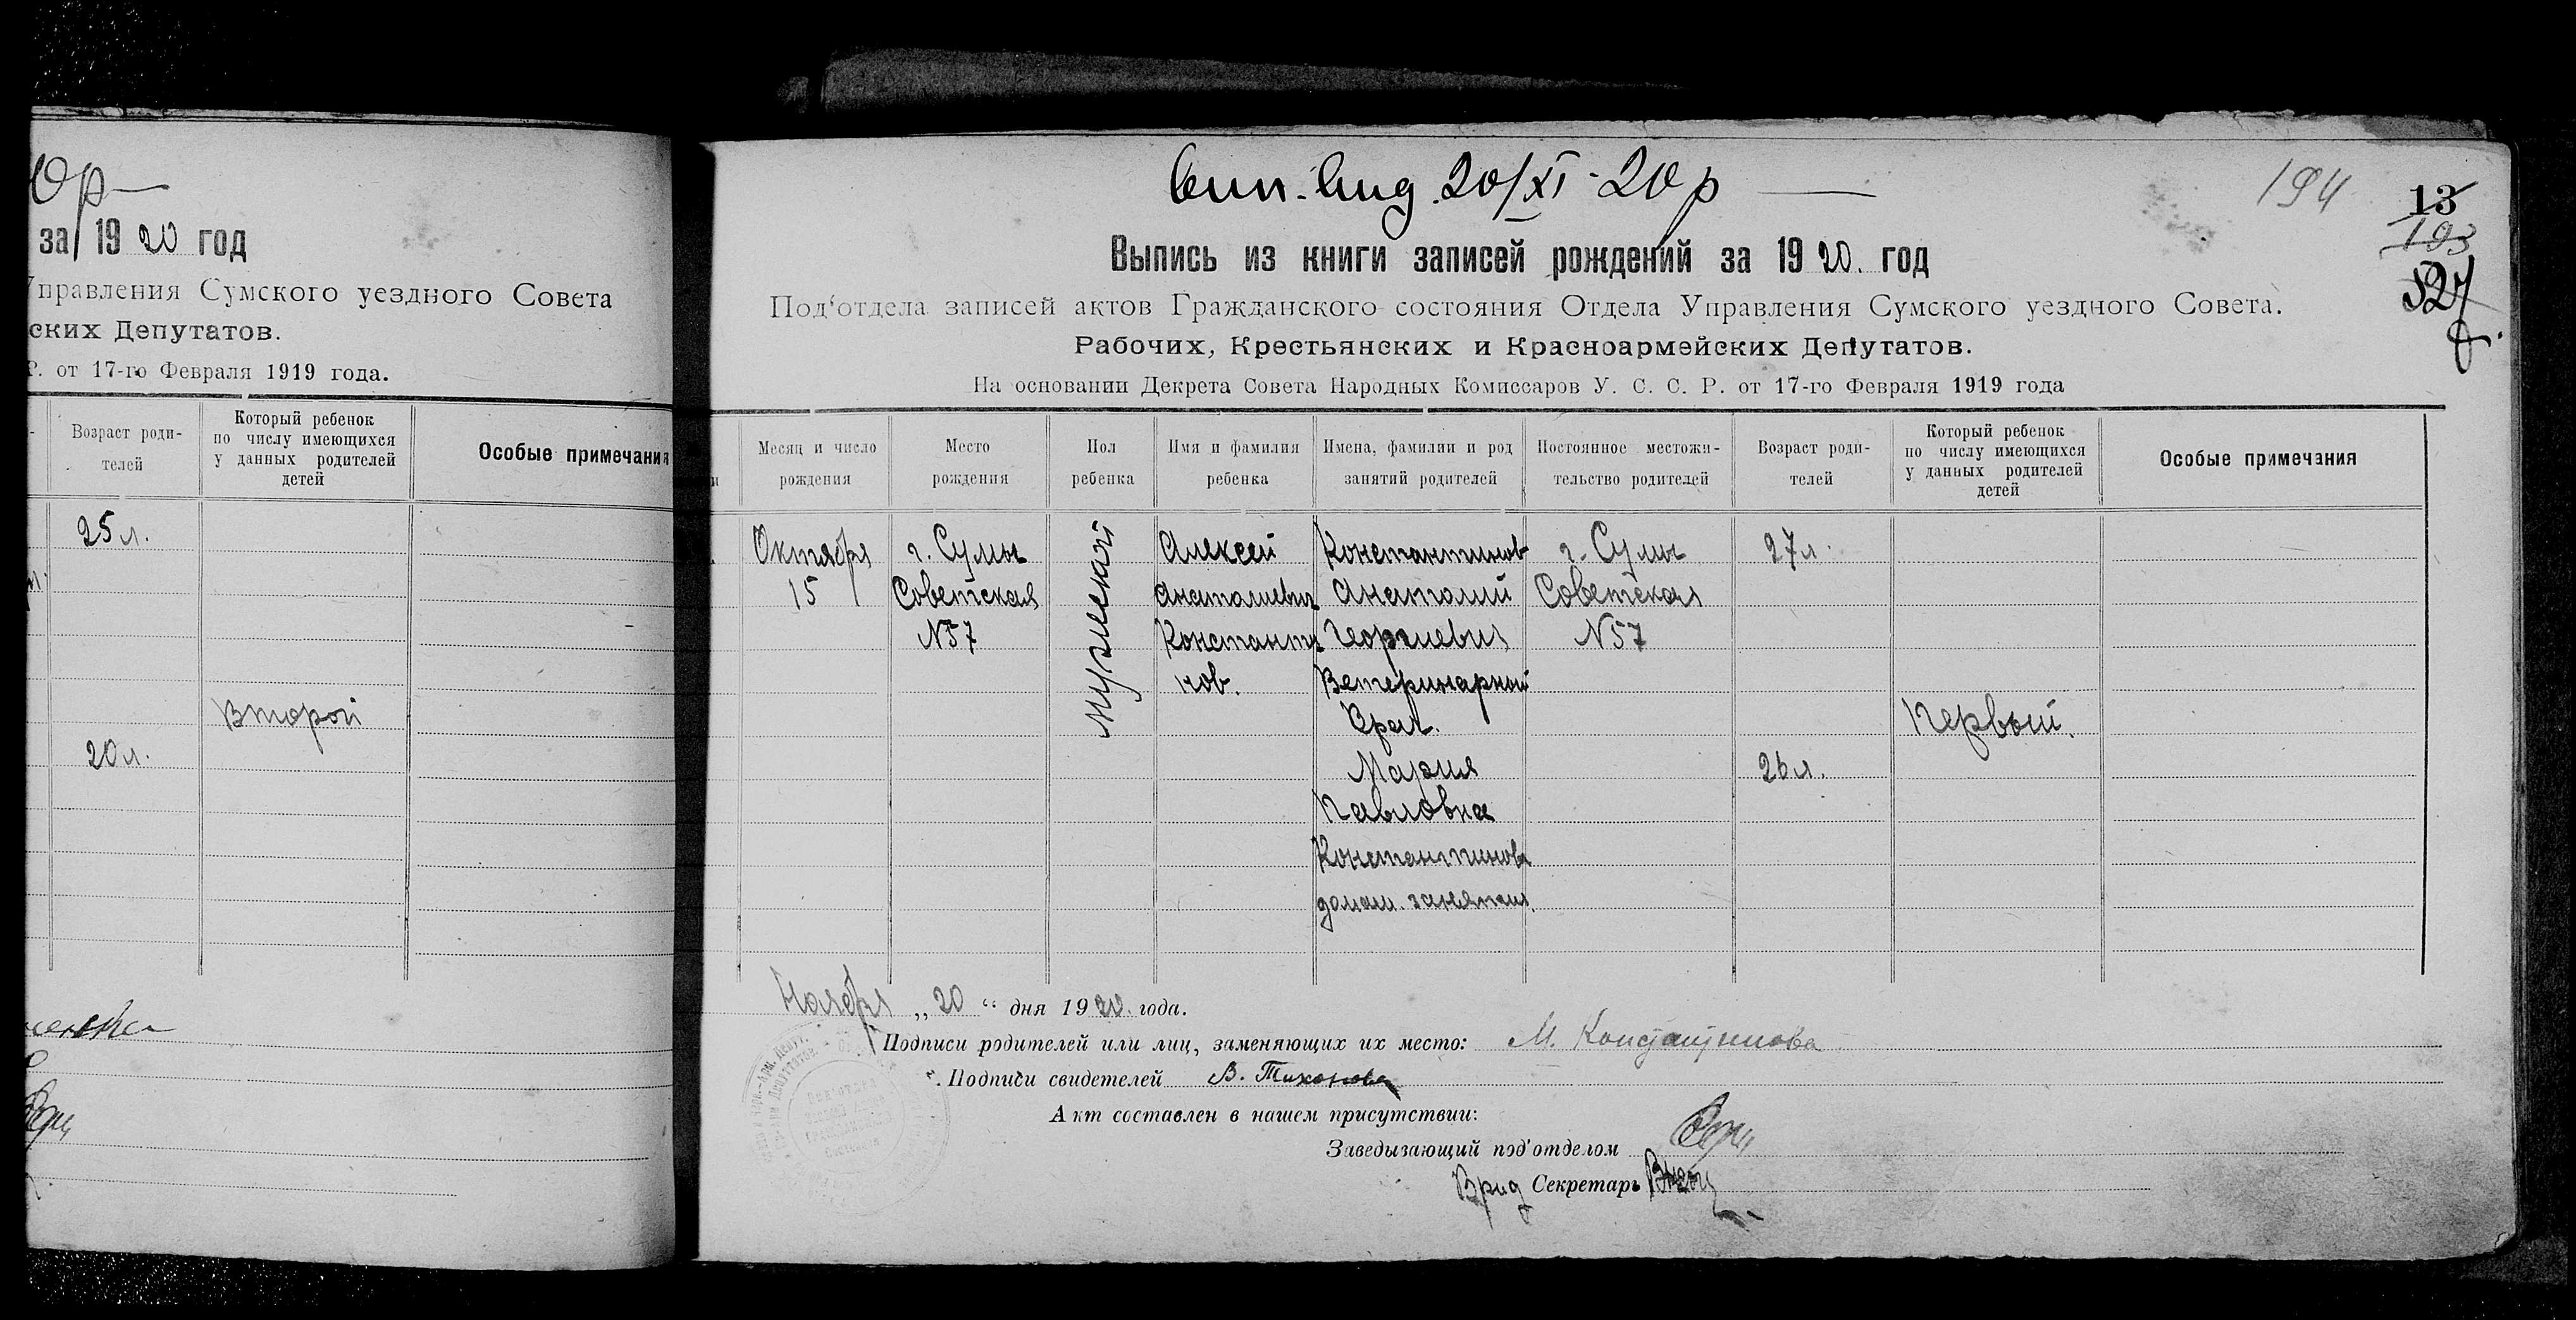 20р
за 1920 год
Управления Сумского уездного Совета
ских Депутатов.
Р. от 17-го Февраля 1919 года.
Возраст роди-
телей
Который ребенок
по числу имеющихся
у данных родителей
детей
Особые примечания
25 л.
Второй
20 л.
20/XI-20р
194
13
193
527
Выпись из книги записей рождений за 1920. год
Под'отдела записей актов Гражданского состояния Отдела Управления Сумского уездного Совета.
Рабочих, Крестьянских и Красноармейских Депутатов.
На основании Декрета Совета Народных Комиссаров У. С. С. Р. от 17-го Февраля 1919 года
Месяц и число
рождения
Место
рождения
Пол
ребенка
Имя и фамилия
ребенка
Имена, фамилии и род
занятий родителей
Постоянное местожи-
тельство родителей
Возраст роди-
телей
Который ребенок
по числу имеющихся
у данных родителей
детей
Особые примечания
Октября
15
г. Сумы
Советская
N57
мужеской
Алексей
Анатолиевич
Константи
нов.
Константинов
Анатолий
Георгиевич
Ветеринарной
Врач.
Мария
Павловна
Константинова
домаш. занятия.
г. Сумы
Советская
N57
27 л.
26 л.
Первый.
Ноября „20“ дня 1920. года.
Подписи родителей или лиц, заменяющих их место: М. Константинова
Подписи свидетелей В. Тихонова
Акт составлен в нашем присутствии:
Заведызающий под'отделом
Врид Секретарь